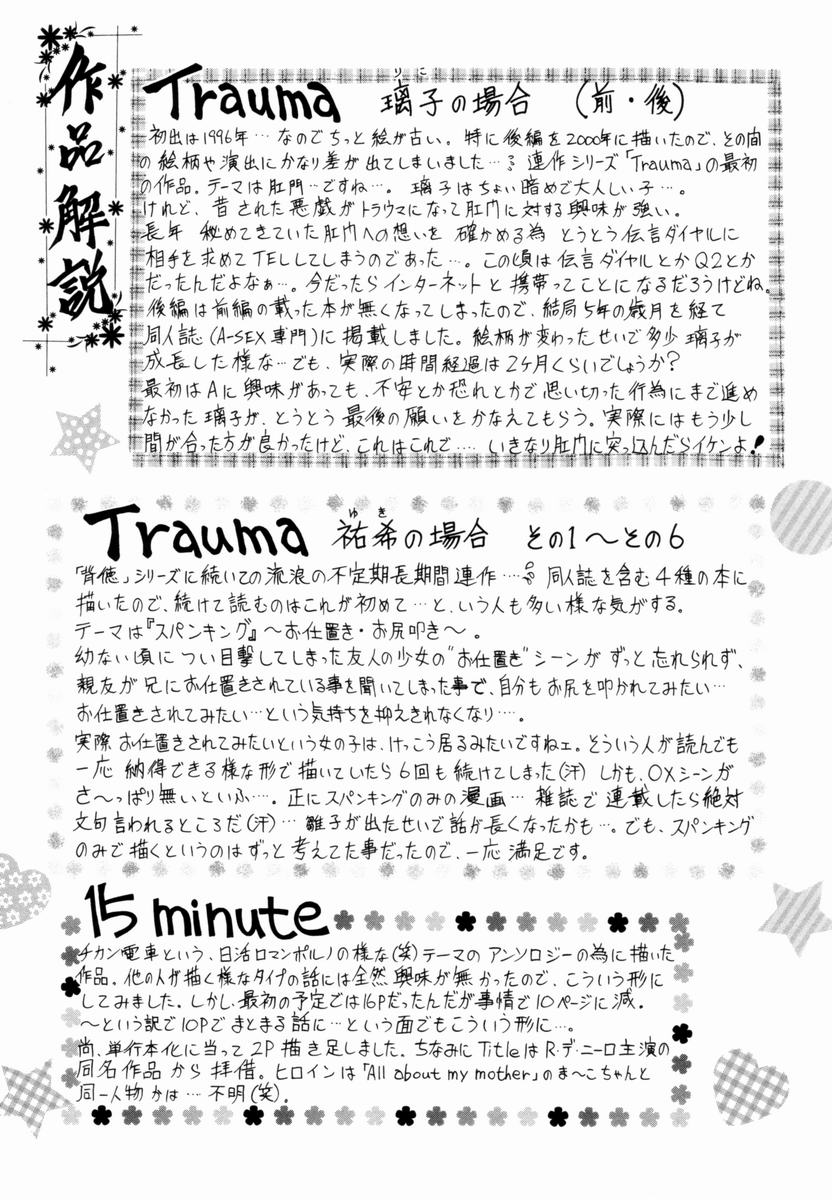 作品解説
Trauma 璃子の場合 (前・後)
りこ
初出は1996年…なのでちっと絵が古い。特に後編を2000年に描いたので、その間
の絵柄や演出にかなり差が出てしまいました…。連作シリーズ「Trauma」の最初
の作品。テーマは肛門…ですね…。璃子はちょい暗めで大人しい子…。
けれど、昔された悪戯がトラウマになって肛門に対する興味が強い。
長年 秘めてきていた肛門への想いを 確かめる為 とうとう伝言ダイヤルに
相手を求めてTELしてしまうのであった…。この頃は伝言ダイヤルとかQ2とか
だったんだよなぁ…。今だったらインターネットと携帯ってことになるだろうけどね。
後編は前編の載った本が無くなってしまったので、結局5年の歳月を経て
同人誌(A-SEX専門)に掲載しました。絵柄が変わったせいで多少璃子が
成長した様な…でも、実際の時間経過は2ヶ月くらいでしょうか?
最初はAに興味があっても、不安とか恐れとかで思い切った行為にまで進め
なかった璃子が、とうとう最後の願いをかなえてもらう。実際にはもう少し
間が合った方が良かったけど、これはこれで…. いきなり肛門に突っ込んだらイケンよ!
Trauma 祐希の場合 その1〜その6
ゆき
「背徳」シリーズに続いての流浪の不定期長期間連作…。同人誌を含む4種の本に
描いたので、続けて読むのはこれが初めて…と、いう人も多い様な気がする。
テーマは『スパンキング』〜お仕置き・お尻叩き〜。
幼ない頃につい目撃してしまった友人の少女の"お仕置き"シーンがずっと忘れられず、
親友が兄にお仕置きされている事を聞いてしまった事で、自分もお尻を叩かれてみたい…
お仕置きされてみたい…という気持ちを抑えきれなくなり…。
実際お仕置きされてみたいという女の子は、けっこう居るみたいですねェ。そういう人が読んでも
一応 納得できる様な形で描いていたら6回も続けてしまった(汗) しかも、OXシーンが
さ〜っぱり無いといふ…。正にスパンキングのみの漫画…雑誌で連載したら絶対
文句言われるところだ(汗)…雛子が出たせいで話が長くなったかも…。でも、スパンキング
のみで描くというのはずっと考えてた事だったので、一応 満足です。
15 minute
チカン電車という、日活ロマンポルノの様な(笑)テーマのアンソロジーの為に描いた
作品。他の人が描く様なタイプの話には全然興味が無かったので、こういう形に
してみました。しかし、最初の予定では16Pだったんだが事情で10ページに減。
〜という訳で10Pでまとまる話に…という面でもこういう形に…。
尚、単行本化に当って2P描き足しました。ちなみにTitleはR・デ・ニーロ主演の
同名作品から拝借。ヒロインは「All about my mother」のま〜こちゃんと
同一人物かは…不明(笑)。